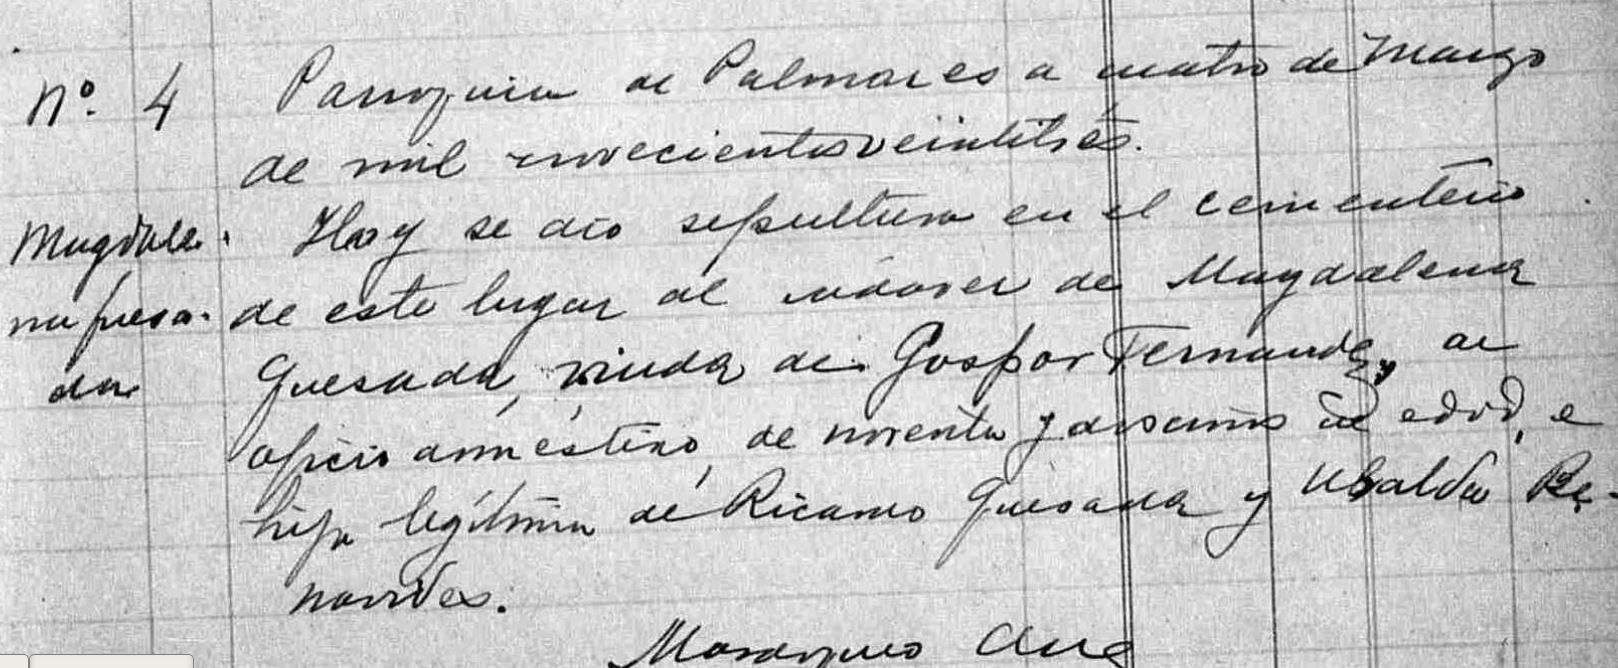 Nº. 4
Parroquia de Palmares a cuatro de Marzo
de mil novecientos veintitrés.
Magdale-
na Quesa-
da
Hoy se dio sepultura en el cementerio
de este lugar al cadaver de Magdalena
Quesada, viuda de Gospar Fernandez, de
oficio doméstico, de noventa y dos años de edad, e
hija legítima de Ricardo Quesada y Ubalda Be-
navides.